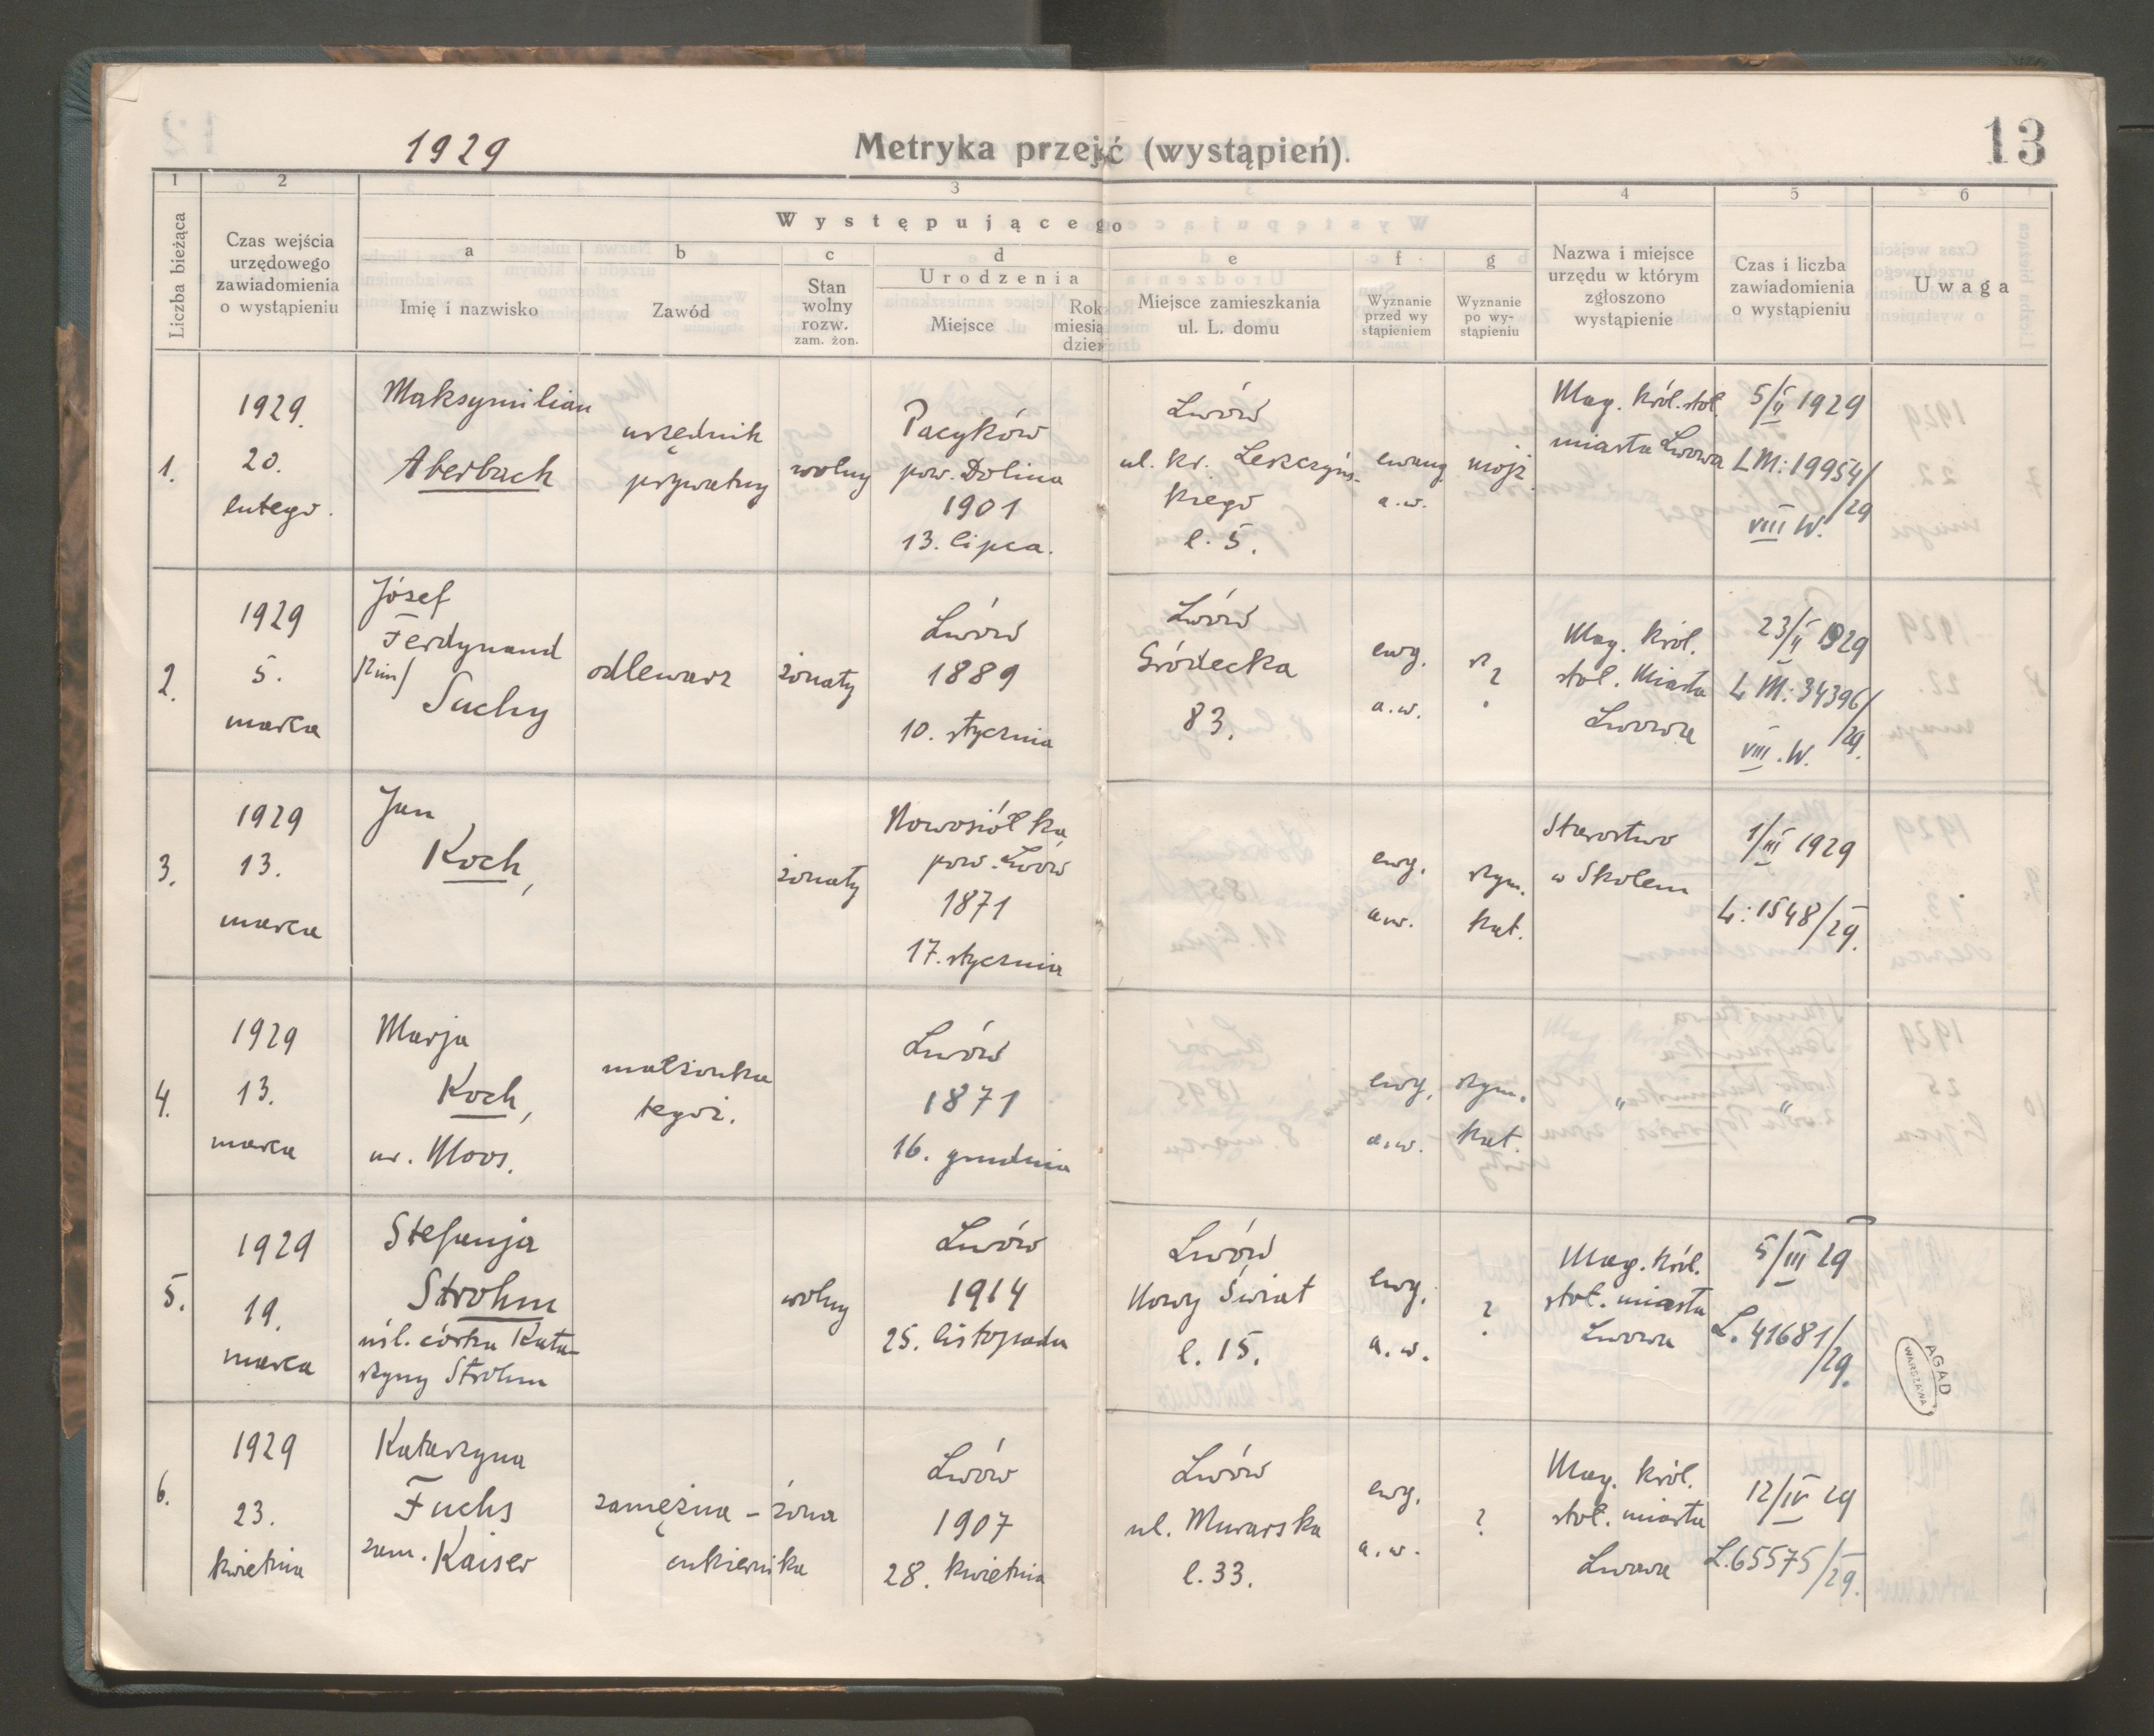 1929
Metryka przejść (wystąpień).
13
1 2 3 4 5 6
Liczba bieżąca
Czas wejścia
urzędowego
zawiadomienia
o wystąpieniu
Występującego
a b c d e f g
Imię i nazwisko
Zawód
Stan
wolny
rozw.
zam. żon.
Urodzenia
Miejsce
Rok
miesią
dzień
Miejsce zamieszkania
ul. L. domu
Wyznanie
przed wy
stąpieniem
Wyznanie
po wy-
stąpieniu
Nazwa i miejsce
urzędu w którym
zgłoszono
wystąpienie
Czas i liczba
zawiadomienia
o wystąpieniu
Uwaga
1.
1929.
20.
lutego.
Maksymilian
Aberbach
urzędnik
prywatny
wolny
Pacyków
pow. Dolina
1901
13. lipca.
Lwów
ul. Kr. Leszczyńs-
kiego
l. 5.
ewang.
a.w.
mojż.
Mag. król. stoł.
miasta Lwowa
5/II 1929
LM: 19954/
/29
VIII W.
2.
1929
5.
marca
Józef
Ferdynand
Suchy
odlewarz
żonaty
Lwów
1889
10. stycznia
Lwów
Gródecka
83.
ewg.
a.w.
?
Mag. król.
stoł. Miasta
Lwowa
23/II 1929
L M: 34396/
/29.
VIII. W.
3.
1929
13.
marca
Jan
Koch,
żonaty
Nowosiółka
pow. Lwów
1871
17. stycznia
ewg.
a.w.
rzym.
kat.
Starostwo
w Skolem
1/III 1929
L: 1548/29.
4.
1929
13.
marca
Marja
Koch,
ur. Moos.
małżonka
tegoż.
Lwów
1871
16. grudnia
ewg.
a.w.
rzym.
kat.
„
„
5.
1929
19.
marca
Stefanja
Strohm
nśl. córka Kata-
rzyny Strohm
wolny
Lwów
1914
25. listopada
Lwów
Nowy Świat
l. 15.
ewg.
a.w.
?
Mag. król.
stoł. miasta
Lwowa
5/III 29
L. 41681/
/29.
AGAD
WARSZAWA
6.
1929
23.
kwietnia
Katarzyna
Fuchs
zam. Kaiser
zamężna - żona
cukiernika
Lwów
1907
28. kwietnia
Lwów
ul. Murarska
l. 33.
ewg.
a.w.
?
Mag. król.
stoł. miasta
Lwowa
12/IV 29
L. 65575/29.